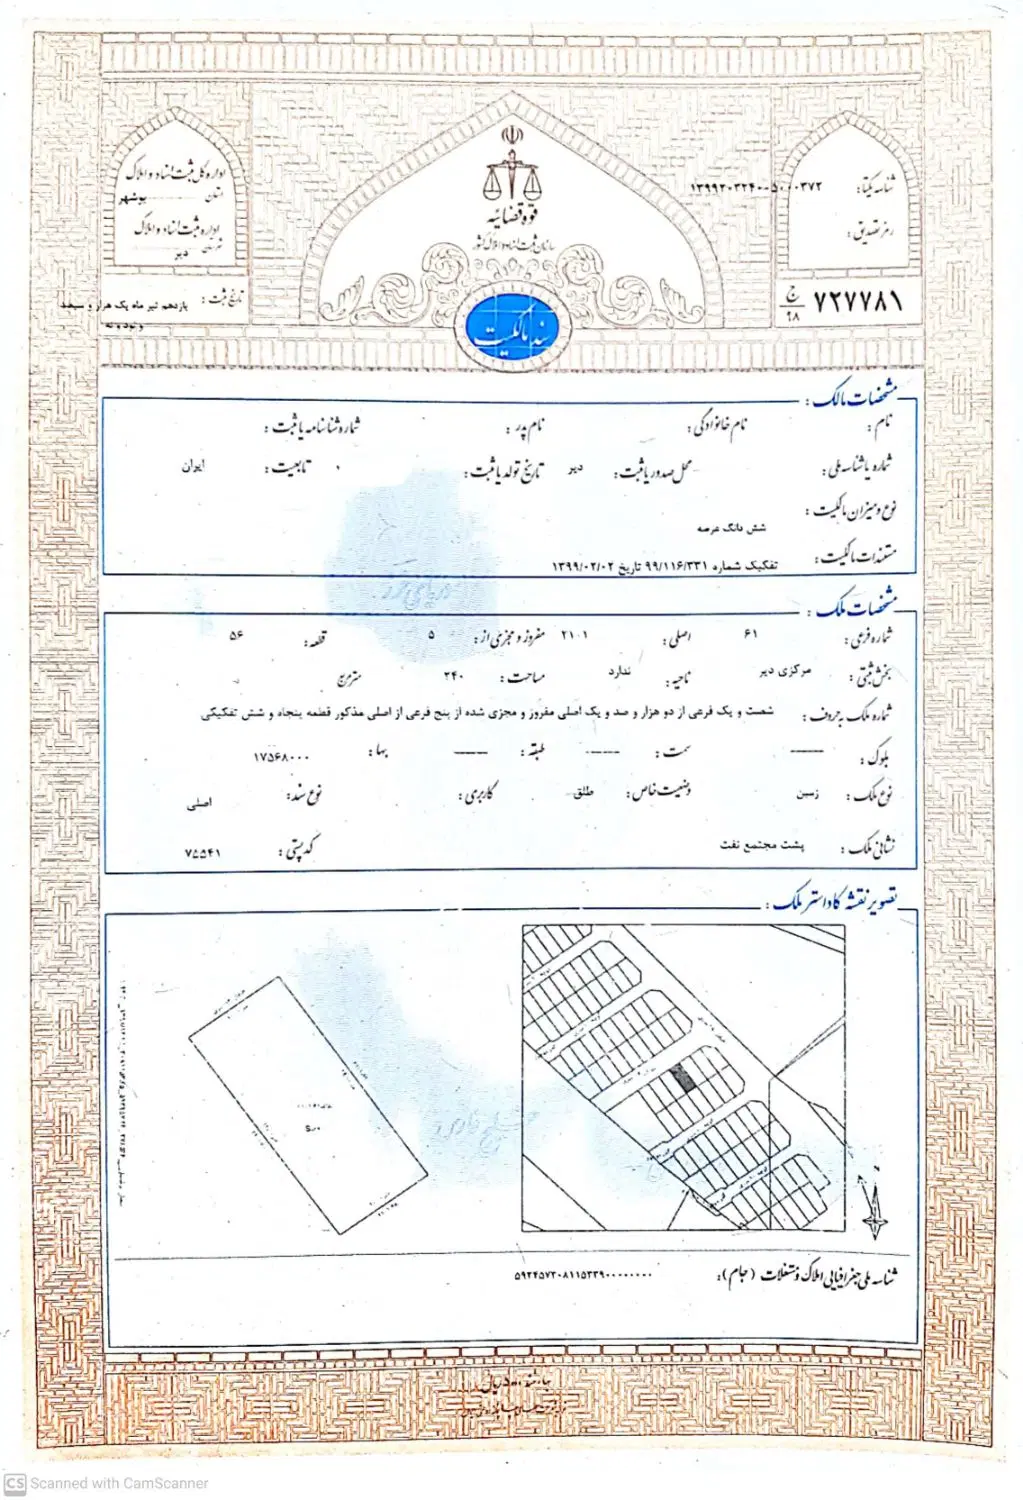 قوه قضائیه
سازمان ثبت اسناد و املاک کشور
سند مالکیت
اداره کل ثبت اسناد و املاک
استان بوشهر
اداره ثبت اسناد و املاک
دیر
تاریخ ثبت : یازدهم تیر ماه یک هزار و سیصد
و نود و نه
شناسه یکتا: ۱۳۹۹۲۰۳۲۴۰۰۵۰۰۰۳۷۲
رمز تصدیق :
۷۲۷۷۸۱ ج ۹۸
مشخصات مالک :
نام : نام خانوادگی : نام پدر : شماره شناسنامه یا ثبت :
شماره یا شناسه ملی : محل صدور یا ثبت : دیر تاریخ تولد یا ثبت : تابعیت : ایران
نوع و میزان مالکیت :
شش دانگ عرصه
مستندات مالکیت : تفکیک شماره ۹۹/۱۱۶/۳۳۱ تاریخ ۱۳۹۹/۰۲/۰۲
مشخصات ملک :
شماره فرعی : ۶۱ اصلی : ۲۱۰۱ مفروز و مجزی از : ۵ قطعه : ۵۶
بخش ثبتی : مرکزی دیر ناحیه : ندارد مساحت : ۲۴۰ مترمربع
شماره ملک به حروف : شصت و یک فرعی از دو هزار و صد و یک اصلی مفروز و مجزی شده از پنج فرعی از اصلی مذکور قطعه پنجاه و شش تفکیکی
بلوک : ——— سمت : ——— طبقه : ——— بها : ۱۷۵۶۸۰۰۰
نوع ملک : زمین وضعیت خاص : طلق کاربری : نوع سند : اصلی
نشانی ملک : پشت مجتمع نفت کدپستی : ۷۵۵۴۱
تصویر نقشه کاداستر ملک :
شناسه ملی جغرافیایی املاک و مستغلات (جام) : ۵۹۲۴۵۷۳۰۸۱۱۵۳۳۹۰۰۰۰۰۰۰۰
CS Scanned with CamScanner